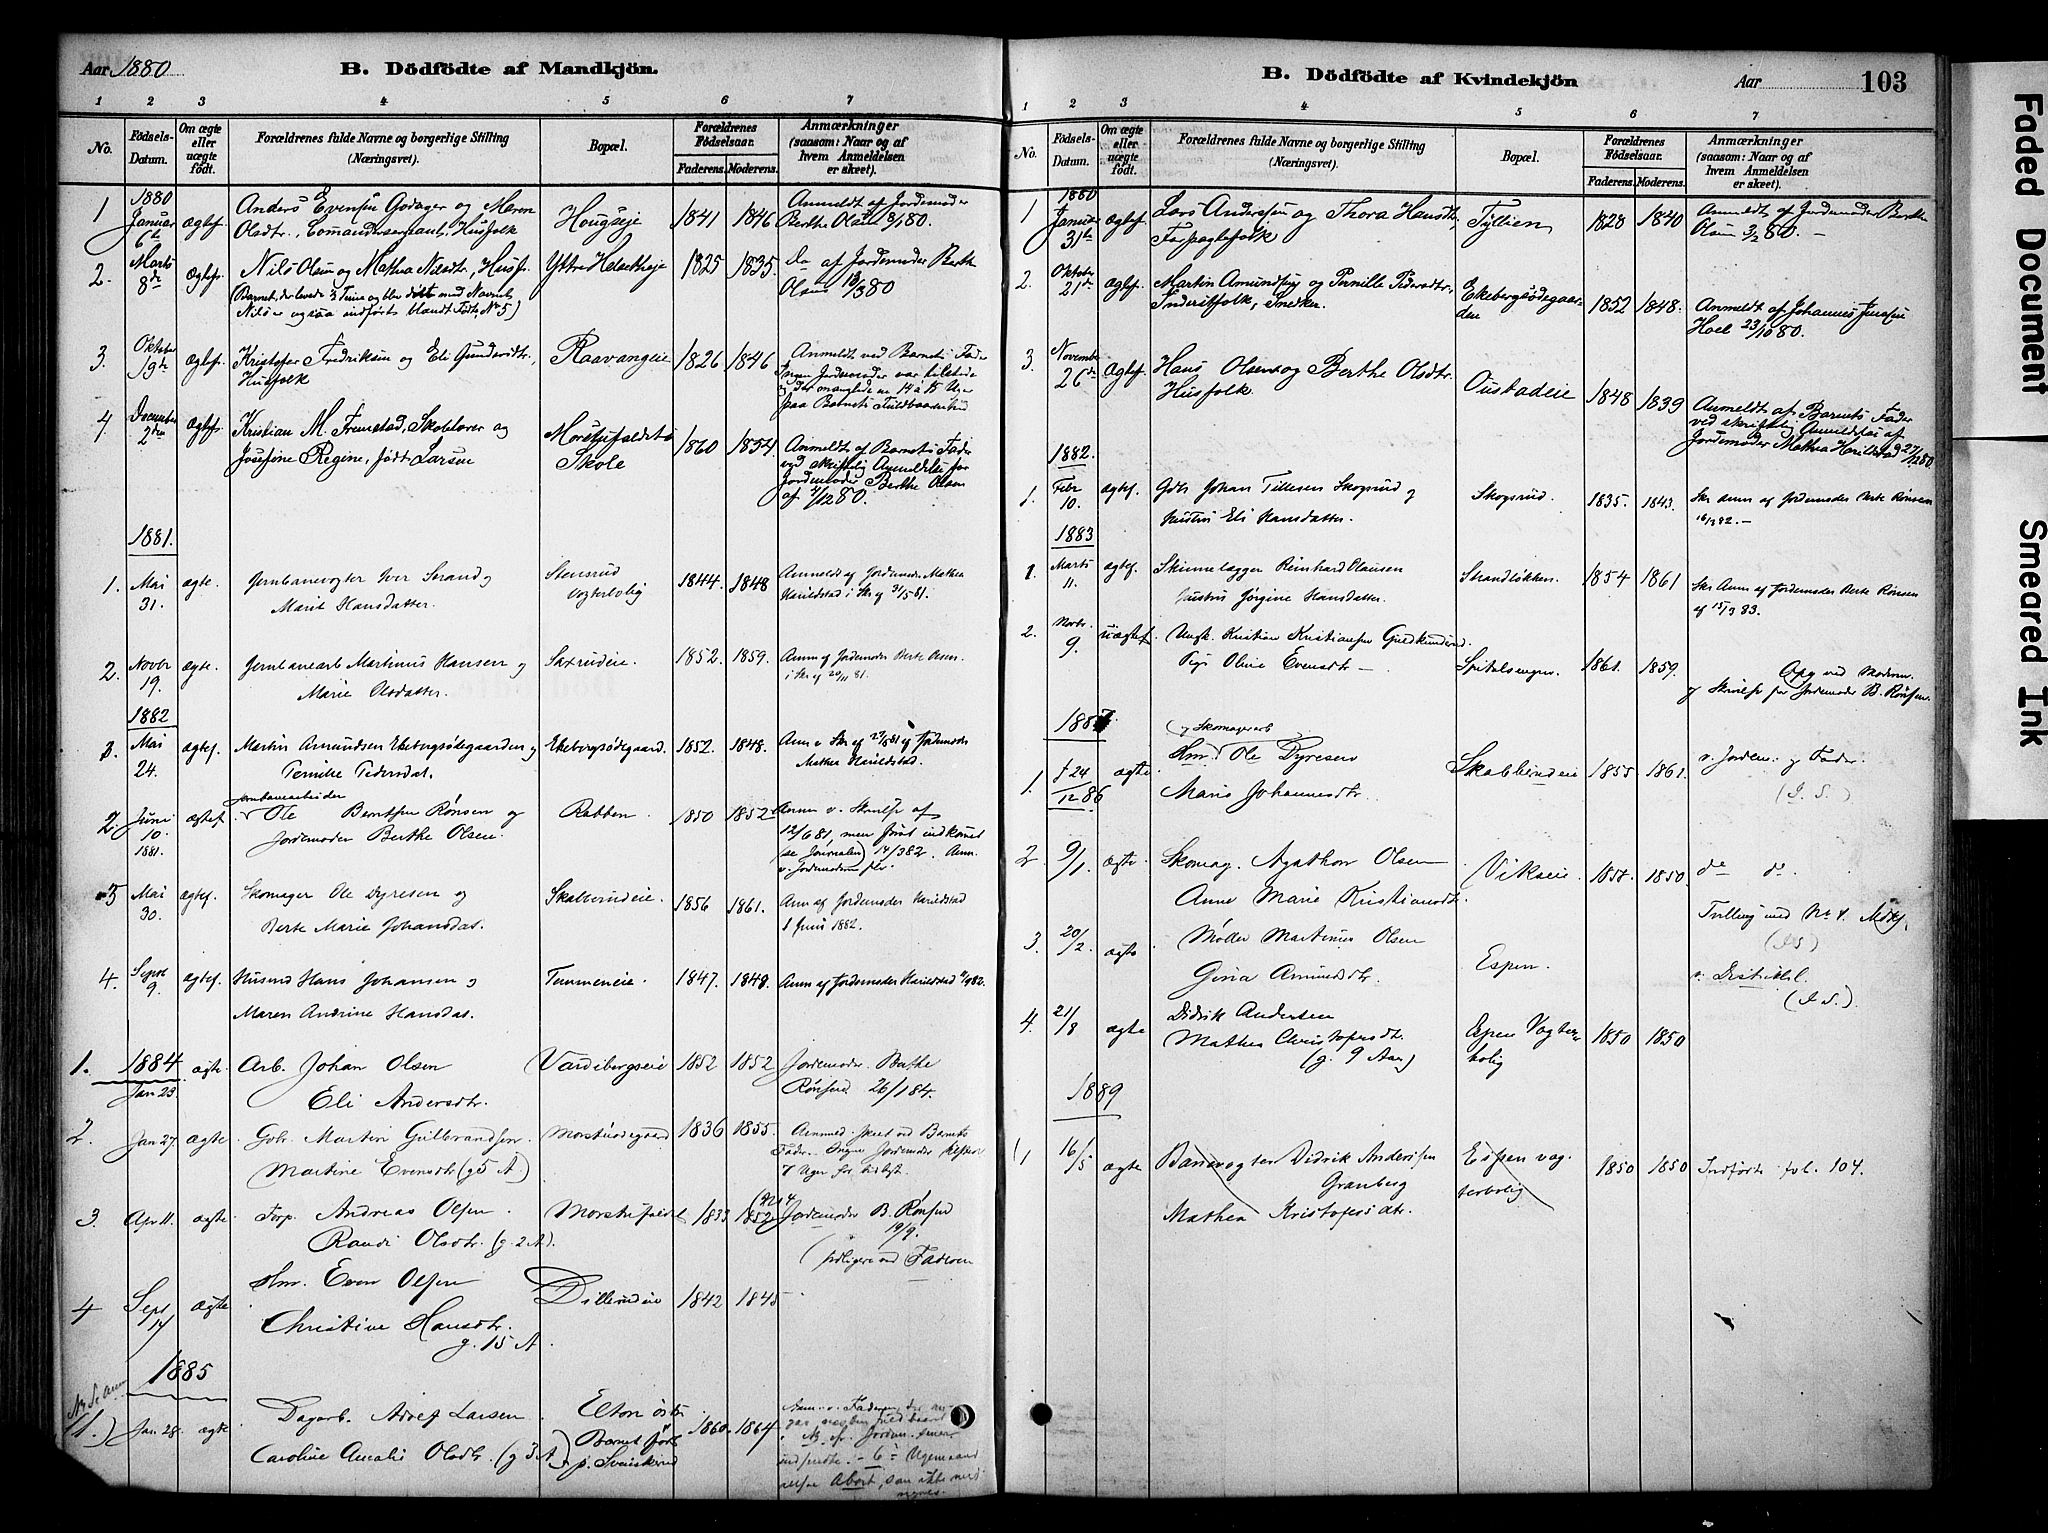 Aar 1880
B. Dödfödte af Mandkjön.
1 2 3 4 5 6 7
No.
Födsels-Datum.
Om ægte eller uægte födt.
Forældrenes fulde Navne og borgerlige Stilling (Næringsvei).
Bopæl.
Forældrenes Födselsaar.
Faderens. Moderens.
Anmærkninger (saasom: Naar og af hvem Anmeldelsen er skeet).
1 1880 Januar 6te ægtef. Anders Evensen Godager og Maren Olsdtr., Husfolk Hougseje 1841 1846 Anmeldt af Jordemoder Berthe Olsen 8/1 80.
2. Marts 8de ægtef. Nils Olsen og Mathea Nilsdtr., Husf. Yttre Helsetheje 1825 1835. do af Jordemoder Berthe Olsen 13/3 80
(Barnet, der levede 2 Time og blev döbt med Navnet Nils er ogsaa indförts blandt Födte, No 5)
3. Oktober 19de ægtef. Kristofer Fredriksen og Eli Gundersdtr., Husfolk Raavangeie 1826 1846 Anmeldt ved Barnets Fader
Ingen Jordemoder var tilstede
og der manglede en 14 à 15 Uger
paa Barnets Fuldbaarenhed
4. December 2den ægtef. Kristian M. Fremstad, Skolelærer og Josefine Regine, født Larsen Morskifaldets Skole 1860 1854. Anmeldt af Barnets Fader
ved skriftlig Anmeldelse fra
Jordemoder Berthe Olsen
af 4/12 80.
1881.
1. Mai 31. ægte. Jernbanevogter Iver Strand og Marit Hansdatter. Stensrud Vogterbolig 1844. 1848 Anmeldt af Jordemoder Mathea Harildstad i Skr. af 31/5 81.
2. Novbr 19. ægte. Jernbanearb Martinus Hansen og Marie Olsdatter. Saxrudeie. 1852. 1859. Anm af Jordemoder Berte Olsen. i Skr. af 20/11 81.
1882
1. Mai 24. ægtef. Martin Amundsen Ekebergsödegaarden og Pernille Pedersdat. Ekebergsödegaard. 1852. 1848. Anm v. Skr af 29/5 81 af Jordemoder Mathea Harildstad.
2. Juni 10. 1881. ægtef. Jernbanearbeider Ole Berntsen Rønsen og Jordemoder Berthe Olsen. Rabben. 1850 1852 Anm v. Skrivelse af
12/6 81, men först indkomet
(se Journalen) 14/3 82. Anm.
v. Jordemoderen selv.
3 Mai 30. ægtef. Skomager Ole Dyresen og Berte Marie Johansdat. Skabberudeie. 1856 1861. Anm af Jordemoder Harildstad 1 Juni 1882.
4. Septr 9. ægtef. Husmd Hans Johansen og Maren Andrine Hansdat. Tommeneie. 1847. 1848. Anm af Jordemoder Harildstad 11/9 82.
1. 1884 Jan 23. ægte. Arb. Johan Olsen Eli Andersdtr. Vardebergseie 1852 1852 Jordemoder Berthe Rönsen 26/1 84.
2. Jan 27. ægte Gbr. Martin Gulbrandsen Martine Evensdtr (g. 5 A.) Morstuödegaard 1836 1855. Anmed. skeet ved Barnets Fader.
3. Apr 11. ægte. Torp. Andreas Olsen. Randi Olsdtr. (g. 2 A). Morskifaldet 1833 1852 Jordemoder B. Rönsen 19/9.
(tidligere ved Faderen
4 Sept 14 ægte Hm. Even Olsen Christine Hansdtr. g. 15 A. Dillerudeie 1842 1845
1885
1.) Jan 28. ægte Dagarb. Adolf Larsen Caroline Amalie Olsdtr. (g 3 A). Elton östre Barnet födt p. 1860. 1864 Anm. v. Faderen,
6 Ugers
Abort, som ikke
B. Dödfödte af Kvindekjön
Aar 103
1 2 3 4 5 6 7
No.
Födsels-Datum.
Om ægte eller uægte födt.
Forældrenes fulde Navne og borgerlige Stilling (Næringsvei).
Bopæl.
Forældrenes Födselsaar.
Faderens. Moderens.
Anmærkninger (saasom: Naar og af hvem Anmeldelsen er skeet).
1 1880 Januar 31te ægtef. Lars Andersen og Thora Hansdtr., Torpaglefolk Tyllien 1828 1840 Anmeldt af Jordemoder Berthe Olsen 3/2 80. —
2. Oktober 21de ægtef. Martin Amundsen og Pernille Pedersdtr., Inderstfolk, Snedker. Ekebergsödegaarden 1852 1848. Anmeldt af Johannes Jensen Hoel 23/10 80.
3. November 26de ægtef. Hans Olsen og Berthe Olsdtr. Husfolk. Oustadeie 1848 1839 Anmeldt af Barnets Fader
ved skriftlig Anmeldelse af
Jordemoder Mathea Harildstad 27/12 80.
1882.
1. Febr 10. ægtef. Gbr Johan Tillesen Skogsrud og Hustru Eli Hansdatter. Skogsrud. 1835. 1843. Skr anm af Jordemoder Berte Rønsen 16/2 82. —
1883
1. Marts 11. ægtef. Skinnelægger Reinhard Olausen Hustru Jørgine Hansdatter. Strandløkken. 1854 1861 Skr Anm af Jordemoder Berte Rønsen af 15/3 83.
2. Novbr. 9. uægtef. Ungk. Kristian Kristiansen Pige Oline Evensdtr — Spitalsengen. 1861. 1859. Opg ved Moderen og Skrivelse fra Jordemoder B. Rønsen.
1887
1. f 24/12 86 ægte og Skomagerarb Hm. Ole Dyresen Marie Johannesdtr. Skabberudeie 1855 1861. v. Jordem. og Fader. (I. S.)
2 9/1 ægte Skomag. Agathon Olsen Anne Marie Kristiansdtr. Vikseie. 1858. 1850. do do.
Tvilling med No 4. Mdkj.
(I. S)
3. 20/2. ægte Møller Martinus Olsen Gina Amundsdtr. Espen. v. Distriktsl. (I. S.)
4. 21/8 ægte Didrik Andersen Mathea Christofersdtr. (g. 9 Aar) Espen Vogterbolig 1850 1850
1889
1 16/5 ægte Banevogter Didrik Andersen Granberg Mathea Kristofersdtr. Espen vogterbolig 1850 1850 Indförts fol. 104.
Faded Document
Smeared Ink